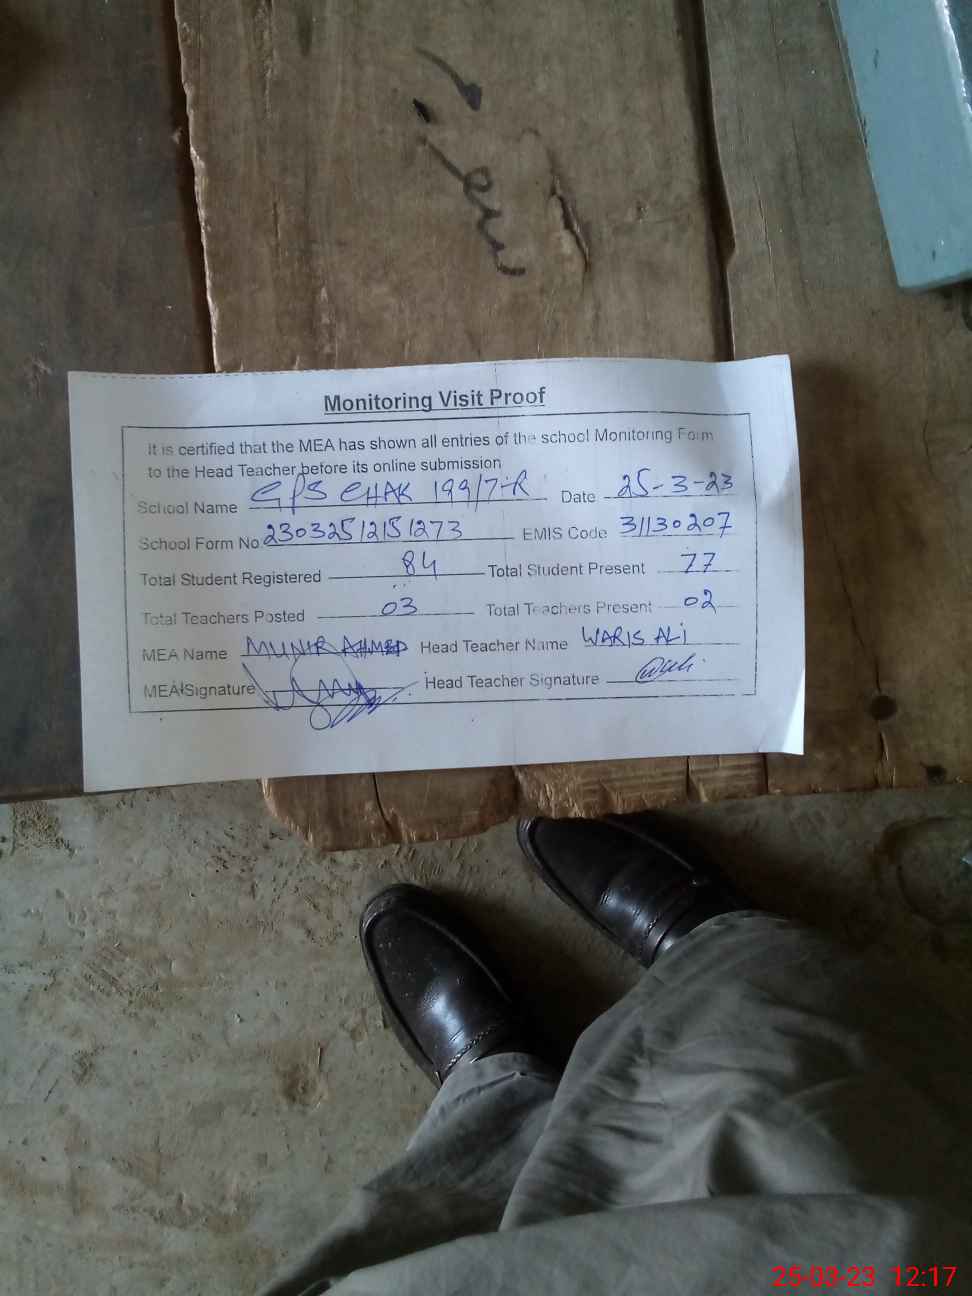 Monitoring Visit Proof
It is certified that the MEA has shown all entries of the school Monitoring Form
to the Head Teacher before its online submission
School Name GPS CHAK 199/7-R Date 25-3-23
School Form No 23032512151273 EMIS Code 31130207
Total Student Registered 84 Total Student Present 77
Total Teachers Posted 03 Total Teachers Present 02
MEA Name MUNIR AHMED Head Teacher Name WARIS ALI
MEA Signature Head Teacher Signature
25-03-23 12:17